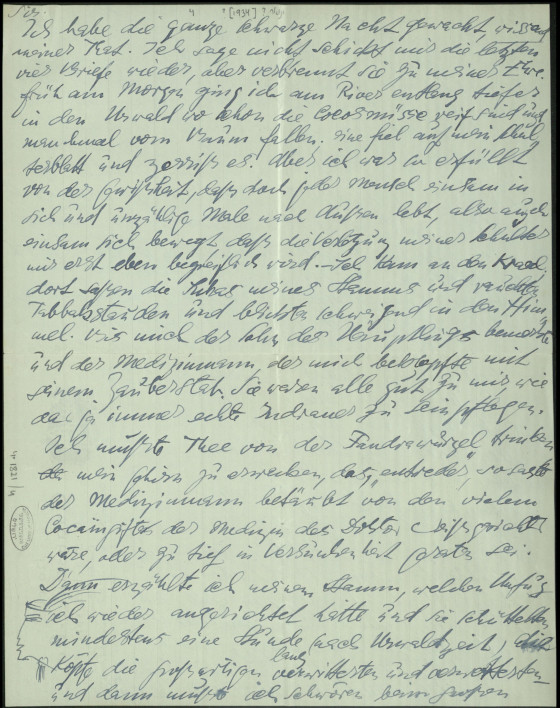 Sir.
[1934]
Ich habe die ganze schwarze Nacht gewacht, wissend
meiner Tat. Ich sage nicht schickt mir die letzten
vier Briefe wieder, aber verbrennt sie zu meiner Ehre.
früh am Morgen ging ich am River entlang tiefer
in den Urwald wo schon die Cocosnüsse reif sind und
manchmal vom Baum fallen. eine fiel auf mein Schul
terblatt und zerriss es. Aber ich war so erfüllt
von der daß doch jeder Mensch einsam in
sich und unzählige Male nach Außen lebt, also auch
einsam sich bewegt, daß die Verletzung meiner Schulter
mir erst eben begreiflich wird. – Ich kam an den Kraal,
dort saßen die meines Stamms und rauchten
Tabbakstauden und bliesen schweigend in den Him
mel. bis mich der Sohn des Häuptlings bemerkte
und der Medizinmann, der mich beklopfte mit
seinem Zauberstab. Sie waren alle gut zu mir, wie
das ja immer echte Indianer zu sein pflegen.
Ich mußte Thee von der trinken
mein Gehirn zu erwecken, das, entweder, so sagte
der Medizinmann betäubt von den vielem
Cocaingiftes der Medizin des Doktor
wäre, oder zu tief in Versunkenheit geraten sei.
Dann erzählte ich meinem Stamm, welchen Unfug
ich wieder angerichtet hatte und sie schüttelten
mindestens eine Stunde (nach Urwaldzeit)
Köpfe die großartigen verwitterten und
und dann mußte ich schwören beim großen